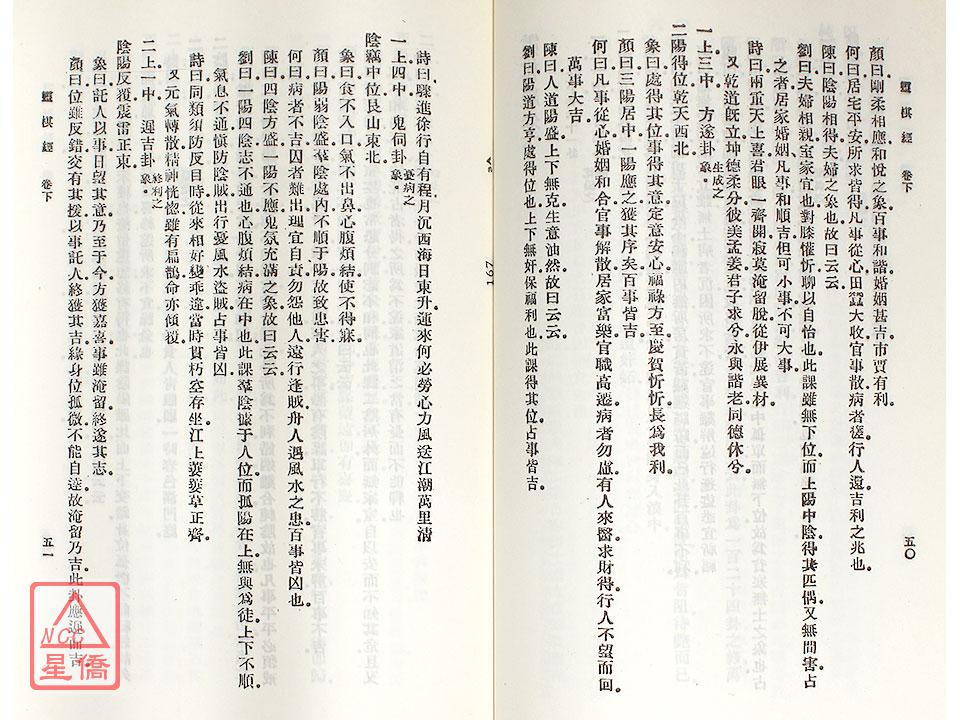 靈棋經　卷下　五〇
顏曰剛柔相應和悅之象百事和諧婚姻甚吉市賈有利。
何曰居宅平安所求皆得凡事從心田蠶大收官事散病者瘥行人還吉利之兆也
陳曰陰陽相得夫婦之象也故曰云云
劉曰夫婦相親室家宜也對膝懽忻聊以自怡也此課雖無下位而上陽中陰得其匹偶又無間害占
之者居家婚姻凡事和順吉但可小事不可大事
詩曰兩重天上喜君眼一齊開寂莫淹留脫從伊展異材。
又乾道既立坤德柔分彼美孟姜君子求兮永與諧老同德休兮。
一上三中　方遂卦　生成之象。
二陽得位乾天西北
象曰處得其位事得其意定意安心福祿方至慶賀忻忻長爲我利。
顏曰三陽居中一陽應之獲其序矣百事皆吉
何曰凡事從心婚姻和合官事解散居家富樂官職高遷病者勿慮有人來醫求財得行人不望而回
萬事大吉
陳曰人道陽盛上下無克生意油然故曰云云
劉曰陽道方亨處得位也上下無奸保福利也此課得其位占事皆吉
詩曰驟進徐行自有程月沉西海日東升運來何必勞心力風送江潮萬里清
一上四中　鬼伺卦　憂病之象。
陰竊中位艮山東北
象曰食不入口氣不出鼻心腹煩結使不得寐
顏曰陽弱陰盛羣陰處內不順于陽故致患害
何曰病者不吉囚者難出理宜自責勿怨他人遠行逢賊舟人遇風水之患百事皆凶也
陳曰四陰方盛一陽不應鬼氛充滿之象故曰云云
劉曰一陽四陰志不通也心腹煩結病在中也此課羣陰據于人位而孤陽在上無與爲徒上下不順
氣息不通愼防陰賊出行憂風水盜賊占事皆凶
詩曰同類須防反目時從來相好變乖違當時貫朽空存坐江上萋萋草正齊
又元氣轉散精神恍惚雖有扁鵲命亦傾覆
二上一中　遲吉卦　終利之象。
陰陽反覆震雷正東
象曰託人以事日望其意乃至于今方獲嘉喜事雖淹留終遂其志。
顏曰位雖反錯交有其援以事託人終獲其吉緣身位孤微不能自達故淹留乃吉此卦應遲而吉
靈棋經　卷下　五一
NCC
星僑